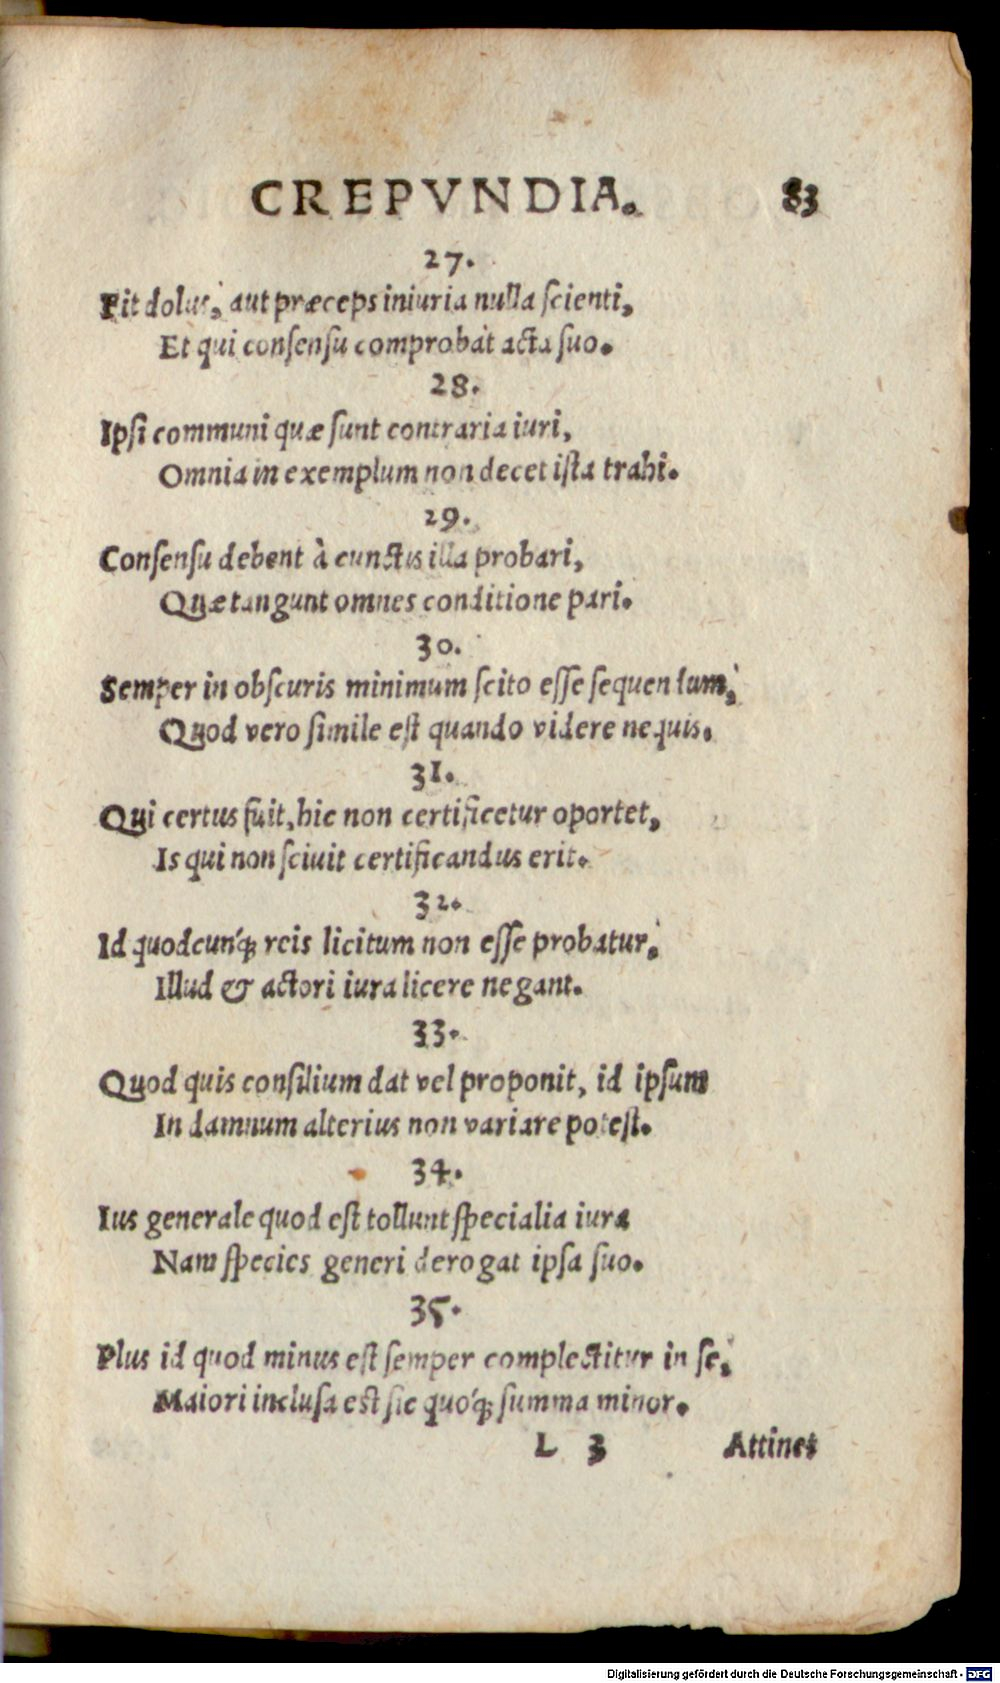 CREPVNDIA. 83
27.
Fit dolus, aut præceps iniuria nulla scienti,
Et qui consensu comprobàt acta suo.
28.
Ipsi communi quæ sunt contraria iuri,
Omnia in exemplum non decet ista trahi.
29.
Consensu debent à cunctis illa probari,
Quæ tangunt omnes conditione pari.
30.
Semper in obscuris minimum scito esse sequendum,
Quod vero simile est quando videre nequis.
31.
Qui certus fuit, hic non certificetur oportet,
Is qui non sciuit certificandus erit.
32.
Id quodcunq́; reis licitum non esse probatur,
Illud & actori iura licere negant.
33.
Quod quis consilium dat vel proponit, id ipsum
In damnum alterius non variare potest.
34.
Ius generale quod est tollunt specialia iura
Nam species generi derogat ipsa suo.
35.
Plus id quod minus est semper complectitur in se,
Maiori inclusa est sic quoq́; summa minor.
L 3 Attinet
Digitalisierung gefördert durch die Deutsche Forschungsgemeinschaft - DFG